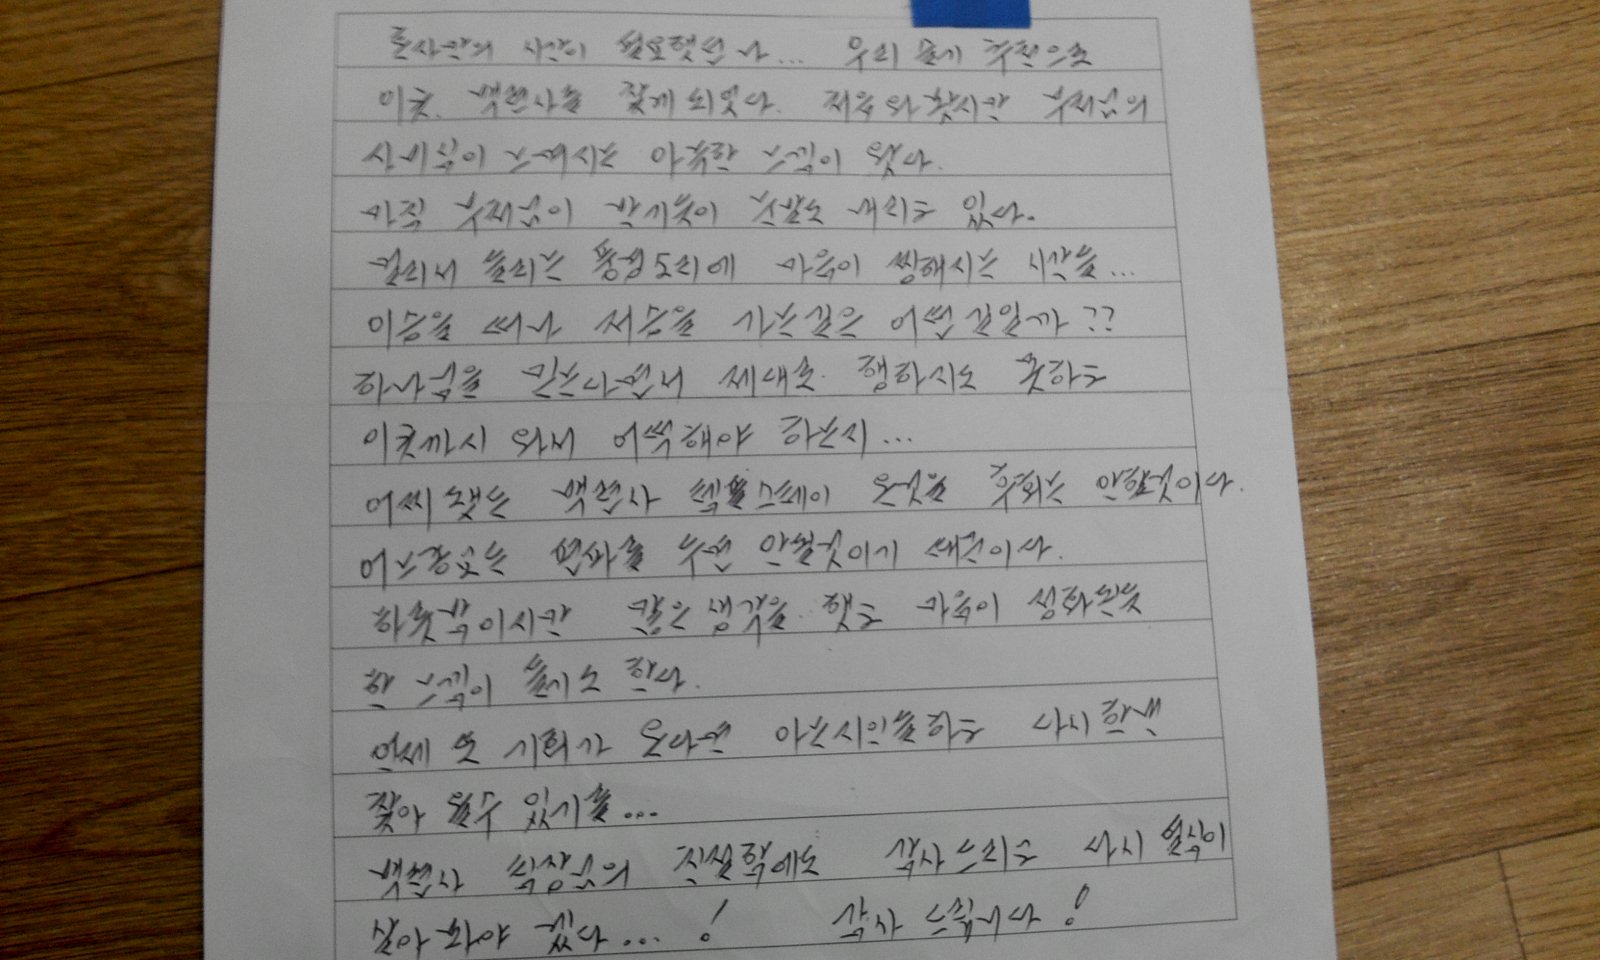 혼자만의 시간이 필요했던 나... 우리 올케 추천으로
이곳. 백련사를 찾게 되었다. 처음 와봤지만 부처님의
자비심이 느껴지고 아늑한 느낌이 왔다.
마침 부처님이 반기듯이 눈발도 내리고 있다.
멀리서 들리는 풍경소리에 마음이 찡해지는 시간들...
이승을 떠나 저승을 가는길은 어떤 길일까??
하나님을 믿는다면서 제대로 행하지도 못하고
이곳까지 와서 어떡해야 하는지...
어찌됐든 백련사 템플스테이 온것을 후회는 안할것이다.
어느정도는 안될것이기 때문이다.
하룻밤이지만 많은 생각을 했고 마음이 정화된듯
한 느낌이 들기도 한다.
언제 또 기회가 온다면 아는지인들하고 다시한번
찾아 올수 있기를...
백련사 친절함에도 감사 드리고 다시 열심이
살아 가야 겠다...! 감사 드립니다!